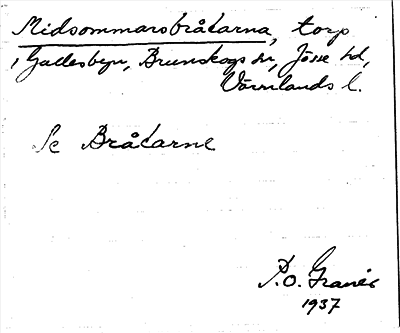 Midsommarsbråtarna, torp
i Gallesbyn, Brunskogs sn, Jösse hd,
Värmlands l.
Se Bråtarne
P.O. Granér
1937